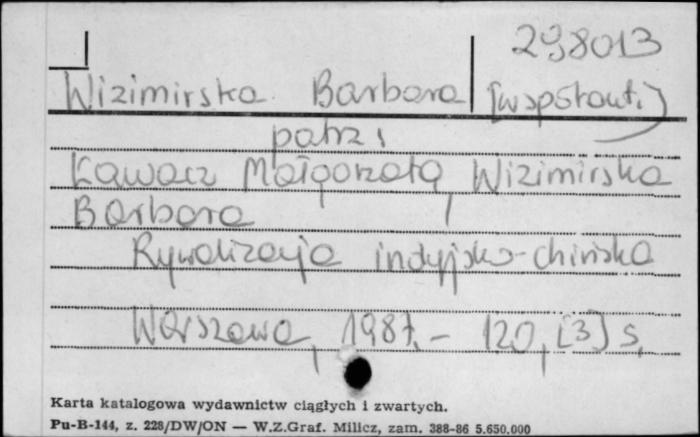 298013
Wizimirska Barbara (współaut.)
patrz:
Kawacz Małgorzata, Wizimirska
Barbara
Rywalizacja indyjsko-chińska
Warszawa, 1987. - 120, [3] s.
Karta katalogowa wydawnictw ciągłych i zwartych.
Pu-B-144, z. 228/DW/ON — W.Z.Graf. Milicz, zam. 388-86 5.650.000